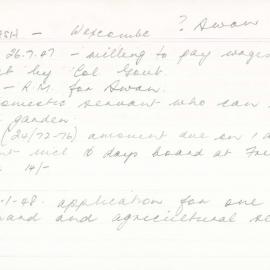 ASH - Wexcombe ? Swan
26.7.07 - willing to pay wages
by Col Govt.
- R.M. for Swan.
domestic servant who can
garden
(24/72-76) amount due on 1 a
incl 6 days board at Fre
14/-
-1-08. application for one
and agricultural se